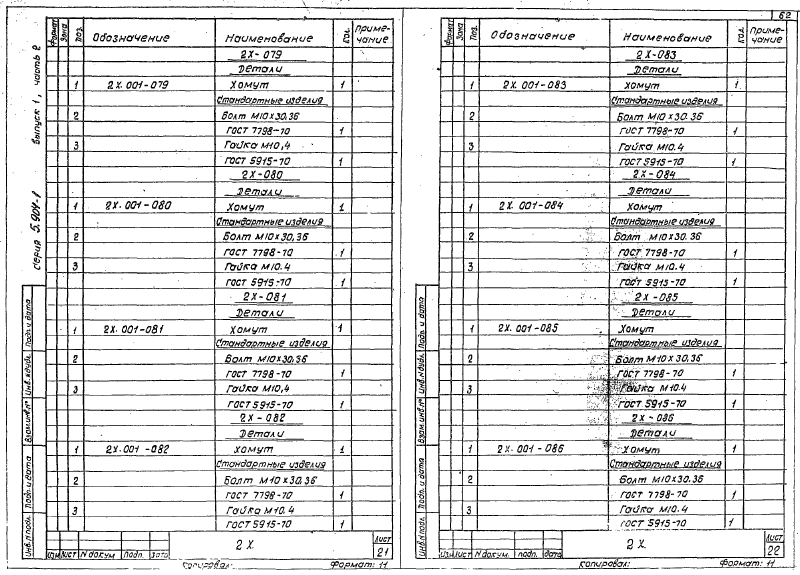 62
Серия 5.904-1 выпуск 1, часть 2
Формат Зона Поз. Обозначение Наименование Кол. Примечание
2Х-079
Детали
1 2Х.001-079 Хомут 1
Стандартные изделия
2 Болт М10х30.36
ГОСТ 7798-70 1
3 Гайка М10.4
ГОСТ 5915-70 1
2Х-080
Детали
1 2Х.001-080 Хомут 1
Стандартные изделия
2 Болт М10х30.36
ГОСТ 7798-70 1
3 Гайка М10.4
ГОСТ 5915-70 1
2Х-081
Детали
1 2Х.001-081 Хомут 1
Стандартные изделия
2 Болт М10х30.36
ГОСТ 7798-70 1
3 Гайка М10.4
ГОСТ 5915-70 1
2Х-082
Детали
1 2Х.001-082 Хомут 1
Стандартные изделия
2 Болт М10х30.36
ГОСТ 7798-70 1
3 Гайка М10.4
ГОСТ 5915-70 1
Инв.N подл. Подп. и дата Взам.инв.N° Инв.N дубл. Подп. и дата
Изм Лист N докум. Подп. Дата
2Х
Лист
21
Копировал: Формат: 11
Формат Зона Поз. Обозначение Наименование Кол. Примечание
2Х-083
Детали
1 2Х.001-083 Хомут 1
Стандартные изделия
2 Болт М10х30.36
ГОСТ 7798-70 1
3 Гайка М10.4
ГОСТ 5915-70 1
2Х-084
Детали
1 2Х.001-084 Хомут 1
Стандартные изделия
2 Болт М10х30.36
ГОСТ 7798-70 1
3 Гайка М10.4
ГОСТ 5915-70 1
2Х-085
Детали
1 2Х.001-085 Хомут 1
Стандартные изделия
2 Болт М10х30.36
ГОСТ 7798-70 1
3 Гайка М10.4
ГОСТ 5915-70 1
2Х-086
Детали
1 2Х.001-086 Хомут 1
Стандартные изделия
2 Болт М10х30.36
ГОСТ 7798-70 1
3 Гайка М10.4
ГОСТ 5915-70 1
Инв.N подл. Подп. и дата Взам.инв.N° Инв.N дубл. Подп. и дата
Изм Лист N докум. подп. дата
2Х
Лист
22
Копировал: Формат: 11